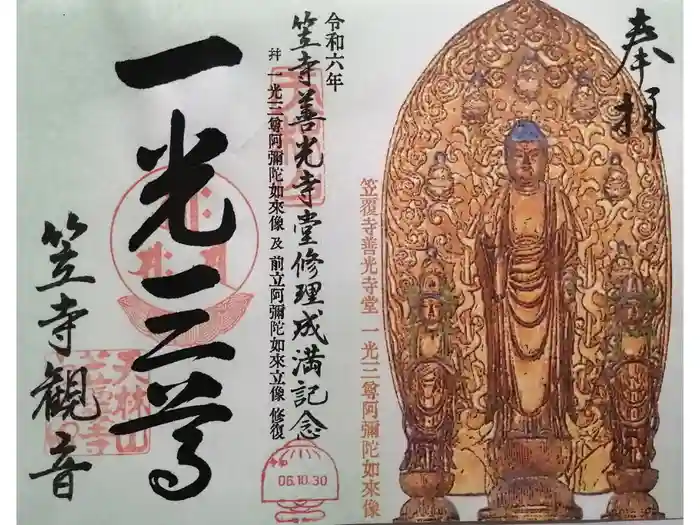 奉拝
笠覆寺善光寺堂 一光三尊阿彌陀如來像
令和六年
笠寺善光寺堂修理成満記念
并 一光三尊阿彌陀如來像 及 前立阿彌陀如來立像 修復
06.10.30
一光三尊
笠寺觀音
天林山
笠覆寺